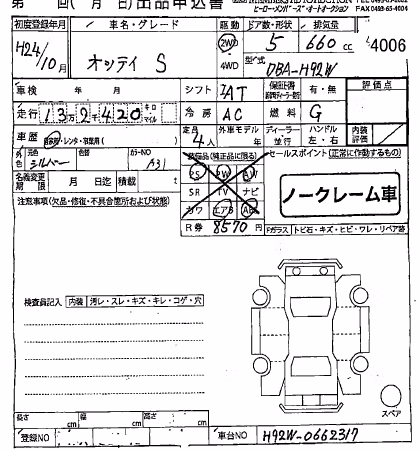 第 回( 月 日)出品申込書
ヒーローメンバーズ・オートオークション FAX0493-65-4004
初度登録年月 車名・グレード 駆動 ドア数・形状 排気量
H24/10月 オッティ S 2WD 4WD 5 660cc 4006
型式 DBA-H92W
車検 年 月 シフト IAT 保証書 有・無 評価点
走行 13万2千420 キロ マイル 冷房 AC 燃料 G
車歴 自家用・レンタ・事業用( ) 定員 4人 外車モデル 年 ディーラー 並行 ハンドル 左・右 内装評価
外色 元色 シルバー 色替 カラーNO A31
装備品(純正品に限る) セールスポイント(正常に作動するもの)
名義変更期限 月 日迄 積載 t
PS PW AW
SR TV ナビ
カワ エアB ABS
ノークレーム車
R券 8570円
注意事項(欠品・修復・不具合箇所および状態)
Fガラス トビ石・キズ・ヒビ・ワレ・リペア跡
検査員記入 内装 汚レ・スレ・キズ・キレ・コゲ・穴
スペア
長さ cm 幅 cm 高さ cm
登録NO 車台NO H92W-0662317